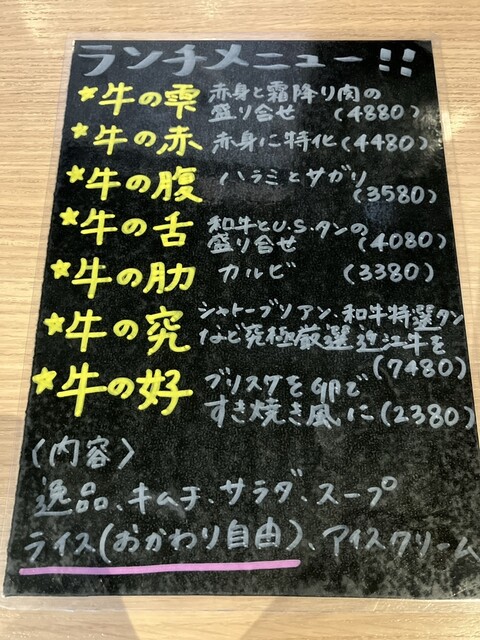 ランチメニュー!!
★牛の雫 赤身と霜降り肉の
盛り合せ (4880)
★牛の赤 赤身に特化(4480)
★牛の腹 ハラミとサガリ
(3580)
★牛の舌 和牛とU.S.タンの
盛り合せ (4080)
★牛の肋 カルビ (3380)
★牛の究 シャトーブリアン、和牛特選タン
など究極厳選近江牛を
(7480)
★牛の好 ブリスケを卵で
すき焼き風に(2380)
〈内容〉
逸品、キムチ、サラダ、スープ
ライス(おかわり自由)、アイスクリーム